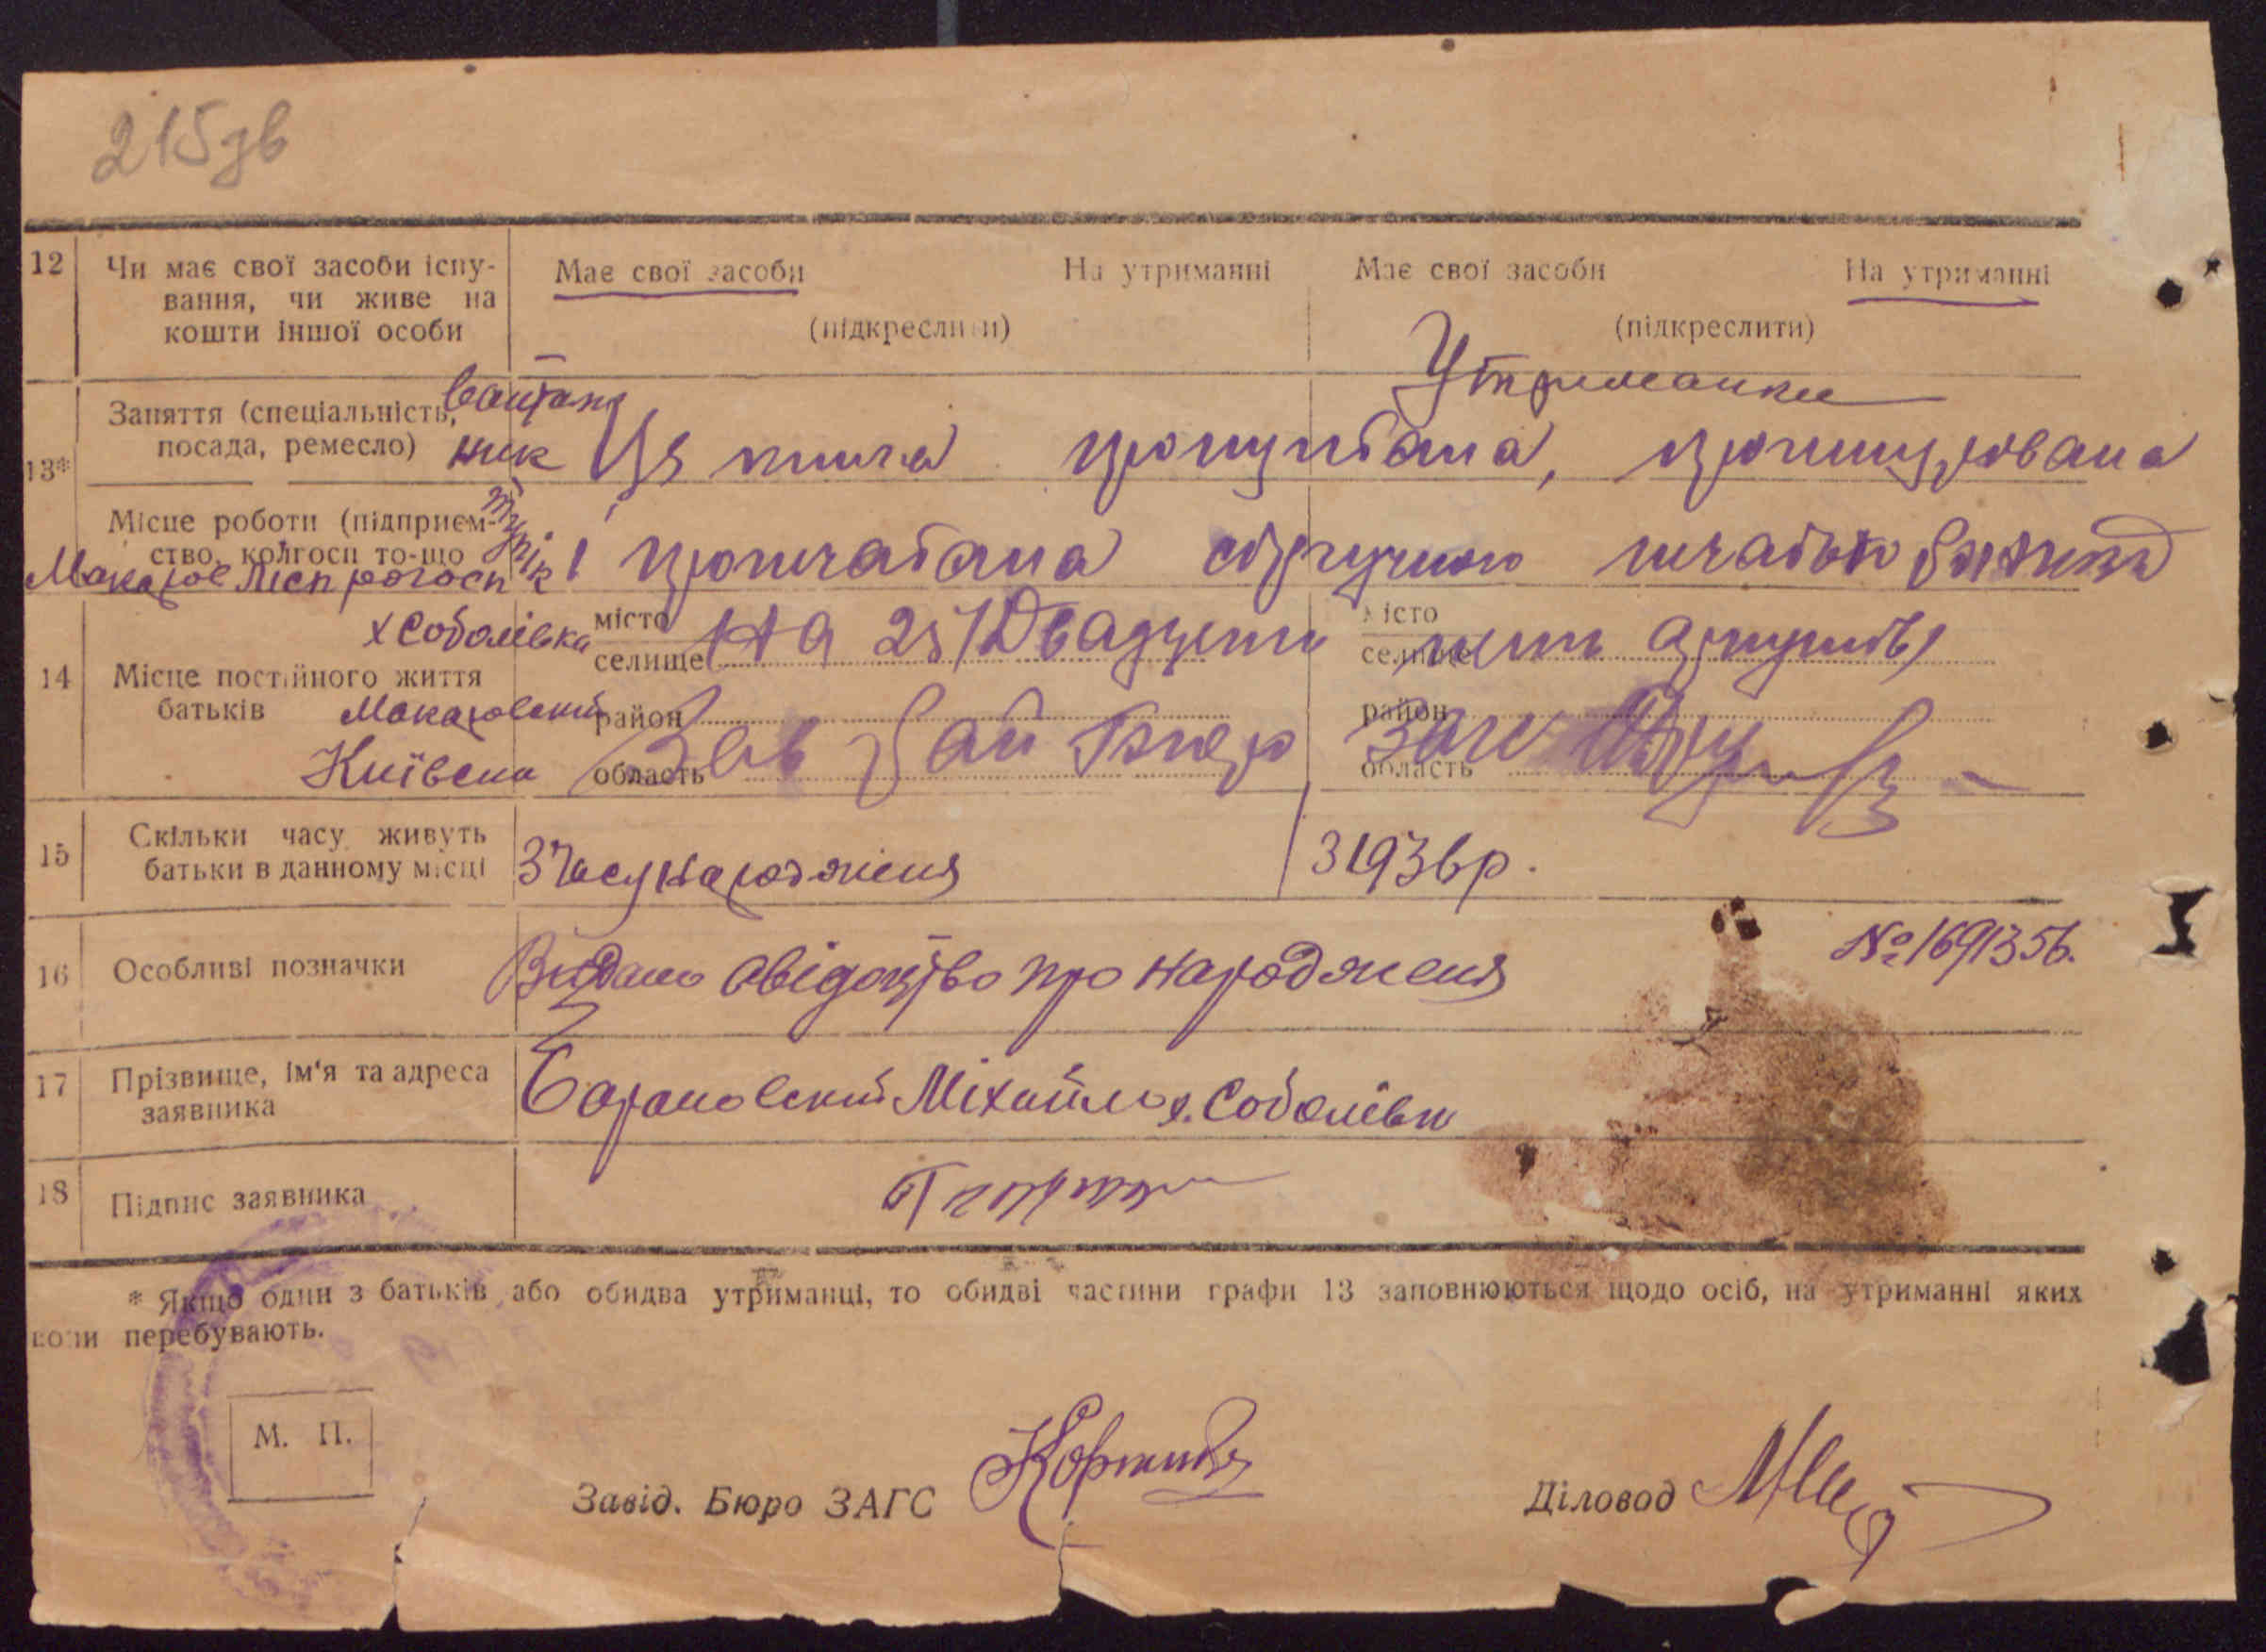 215зв
12 Чи має свої засоби існу-
вання, чи живе на
кошти іншої особи
Має свої засоби На утриманні Має свої засоби На утриманні
(підкреслити) (підкреслити)
Утриманка
13* Заняття (спеціальність,
посада, ремесло)
Ця книга пронумбана, прошнурована
Місце роботи (підприєм-
ство, колгосп то-що
і
На 25 (Двадцять
14 Місце постійного життя
батьків
х Соболівка
Макаровский
Київска
місто
селище
район
область
місто
селище
район
область
Зав Рай Бюро ЗАГС
15 Скільки часу живуть
батьки в данному місці
З часу народженя
З 1936 р.
16 Особливі позначки
Видано свідоцтво про народженя
№ 1691356.
17 Прізвище, ім'я та адреса
заявника
Барановский Міхайло х. Соболівка
18 Підпис заявника
* Якщо один з батьків або обидва утриманці, то обидві частини графи 13 заповнюються щодо осіб, на утриманні яких
вони перебувають.
М. П.
Завід. Бюро ЗАГС
Діловод